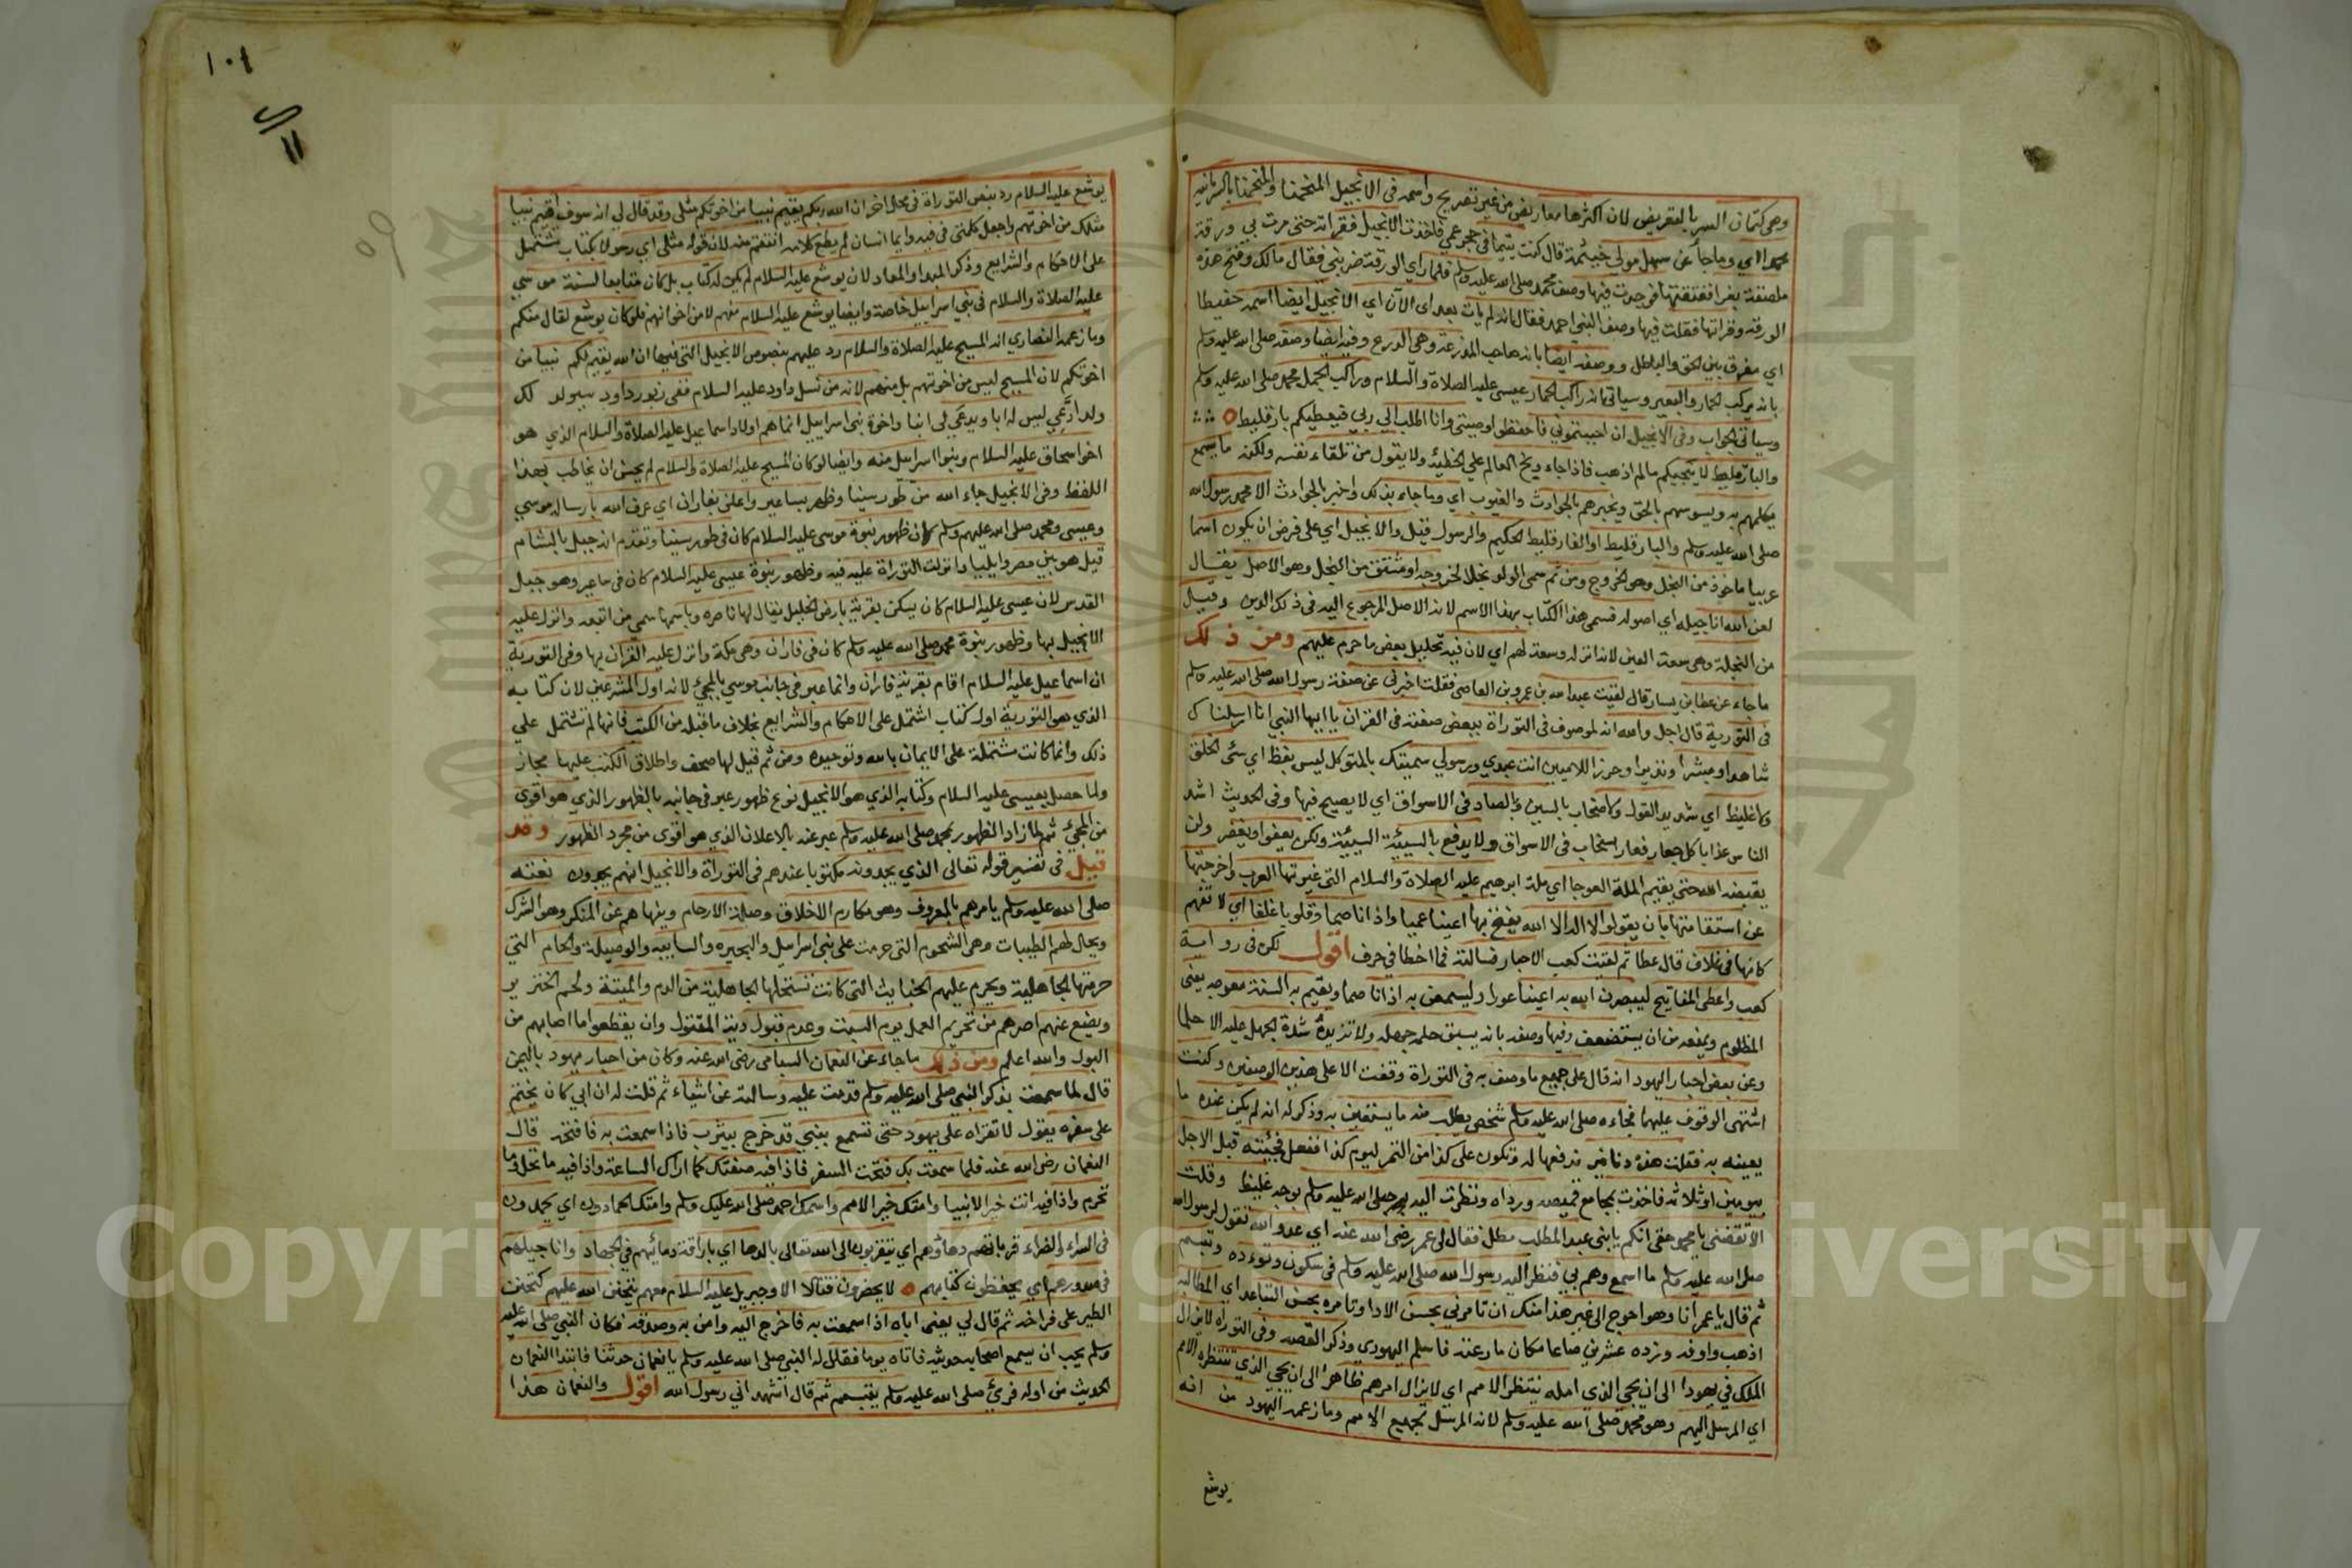 وهى كتمان السر بالتعريض لان اكثرها معاريض من غير تصريح واسمه فى الانجيل المنحمنا والمنحمنا بالسريانيه
محمد اي وما جاء عن سهل مولي خيثمة قال كنت يتيما فى حجر عمي فاخذت الانجيل فقراته حتى مرت بي ورقة
ملصقة بغرا ففتقتها فوجدت فيها وصف محمد صلى الله عليه وسلم فلما راي الورقة ضربني فقال مالك وفتح هذه
الورقة وقراتها فقلت فيها وصف النبي احمد فقال انه لم يات بعد اى الآن اي الانجيل ايضا اسمه حفيطا
اي مفرق بين الحق والباطل ووصفه ايضا بانه صاحب المدرعة وهى الدرع وفيه ايضا وصفه صلى الله عليه وسلم
بانه يركب الحمار والبعير وسياتى انه راكب الحمار عيسى عليه الصلاة والسلام وراكب الجمل محمد صلى الله عليه وسلم
وسياتى الجواب وفى الانجيل ان احببتموني فاحفظوا وصيتى وانا اطلب الي ربي فيعطيكم بارقليط
والبارقليط لا يجيكم مالم اذهب فاذا جاء وبخ العالم علي الخطيئة ولا يقول من تلقاء نفسه ولكنه ما يسمع
يكلمهم به ويسوسهم بالحق ويخبرهم بالحوادث والغيوب اي وما جاء بذلك واخبر بالحوادث الا محمد رسول الله
صلى الله عليه وسلم والبارقليط او الفارقليط الحكيم والرسول قيل والانجيل اي على فرض ان يكون اسما
عربيا ماخوذ من النجل وهو الخروج ومن ثم سمى الولد نجلا لخروجه او مشتق من النجل وهو الاصل يقال
لعن الله اناجيله اي اصوله فسمى هذا الكتاب بهذا الاسم لانه الاصل المرجوع اليه فى ذلك الدين وقيل
من النجلة وهى سعة العين لانه انزل وسعة لهم اي لان فيه تحليل بعض ما حرم عليهم ومن ذلك
ما جاء عن عطا بن يسار قال لقيت عبد الله بن عمرو بن العاصي فقلت اخبرني عن صفة رسول الله صلى الله عليه وسلم
فى التورية قال اجل والله انه لموصوف فى التوراة ببعض صفته فى القران يا ايها النبي انا ارسلناك
شاهدا ومبشرا ونذيرا وحرزا للاميين انت عبدي ورسولي سميتك بالمتوكل ليس بفظ اي سئ الخلق
ولا غليظ اي شديد القول ولا صخاب بالسين والصاد فى الاسواق اي لا يصيح فيها وفى الحديث اشد
الناس عذابا كل جعار نعار سخاب فى الاسواق ولا يدفع بالسيئة السيئة ولكن يعفو او يغفر ولن
يقبضه الله حتى يقيم الملة العوجا اي ملة ابرهيم عليه الصلاة والسلام التى غيرتها العرب واخرجتها
عن استقامتها بان يقولوا لا اله الا الله يفتح بها اعينا عميا واذانا صما وقلوبا غلفا اي لا تفهم
كانها فى غلاف قال عطا ثم لقيت كعب الاحبار فسالته فما اخطا في حرف اقول لكن فى رواية
كعب واعطى المفاتيح ليبصرن الله به اعينا عورا وليسمعن به اذانا صما ويقيم به السنة معوجه يعنى
المظلوم ويمنعه من ان يستضعف وفيها وصفه بانه يسبق حلمه جهله ولا تزيده شدة الجهل عليه الا حلما
وعن بعض احبار اليهود انه قال على جميع ما وصف به فى التوراة وقفت الا على هذين الوصفين وكنت
اشتهى الوقوف عليهما فجاءه صلى الله عليه وسلم شخص يطلب منه ما يستعين به وذكر له انه لم يكن عنده ما
يعينه به فقلت هذه دنانير ندفعها له وتكون على كذا من التمر ليوم كذا ففعل فجئته قبل الاجل
بيومين او ثلاثه فاخذت بمجامع قميصه ورداه ونظرت اليه صلى الله عليه وسلم بوجه غليظ وقلت
الا تقضنى يا محمد حقى انكم يا بنى عبد المطلب مطل فقال لى عمر رضى الله عنه اي عدو الله تقول لرسول الله
صلى الله عليه وسلم ما اسمع وهم بي فنظر اليه رسول الله صلى الله عليه وسلم فى سكون وتوءده وتبسم
ثم قال يا عمر انا وهو احوج الى غير هذا منك ان تامرني بحسن الادا وتامره بحسن التباعه اي المطالبة
اذهب واوفه وزده عشرين صاعا مكان ما رعته فاسلم اليهودي وذكر القصه وفى التوراه لا يزال
الملك في يهودا الى ان يجي الذي اياه ينتظر الامم اي لا يزال امرهم ظاهرا الى ان يجي الذي تنتظره الامم
اي المرسل اليهم وهو محمد صلى الله عليه وسلم لانه المرسل لجميع الامم وما زعمه اليهود من انه
يوشع
١٠٤
يوشع عليه السلام رد بنص التوراة فى محل اخر ان الله ربكم يقيم نبيا من اخوتكم مثلى وقد قال لي انه سوف اقيم نبيا
مثلك من اخوتهم واجعل كلمتى فى فيه وايما انسان لم يطع كلامه انتقمت منه لان قوله مثلى اي رسولا بكتاب تشتمل
على الاحكام والشرايع وذكر المبدا والمعاد لان يوشع عليه السلام لم يكن له كتاب بل كان متابعا لسنة موسي
عليه الصلاة والسلام فى بني اسراييل خاصة وايضا يوشع عليه السلام منهم لا من اخوانهم فلو كان يوشع لقال منكم
وما زعمه النصاري انه المسيح عليه الصلاة والسلام رد عليهم بنصوص الانجيل التى فيها ان الله يقيم لكم نبيا من
اخوتكم لان المسيح ليس من اخوتهم بل منهم لانه من نسل داود عليه السلام ففى زبور داود سيولد لك
ولد ادعي ليس له ابا ويدعي لي ابنا واخوة بنى اسراييل انما هم اولاد اسماعيل عليه الصلاة والسلام الذي هو
اخو اسحاق عليه السلام وبنوا اسراييل منه وايضا لو كان المسيح عليه الصلاة والسلام لم يحسن ان يخاطب بهذا
اللفظ وفى الانجيل جاء الله من طور سينا وظهر بساعير واعلن بفاران اي عرف الله بارسال موسي
وعيسى ومحمد صلى الله عليهم وسلم لان ظهور نبوة موسى عليه السلام كان فى طور سينا وتقدم انه جبل بالشام
قيل هو بين مصر وايليا وانزلت التوراة عليه فيه وظهور نبوة عيسى عليه السلام كان فى ساعير وهو جبل
القدس لان عيسى عليه السلام كان يسكن بقرية بارض الخليل يقال لها ناصره وباسمها سمى من اتبعه وانزل عليه
الانجيل بها وظهور نبوة محمد صلى الله عليه وسلم كان فى فاران وهى مكة وانزل عليه القران بها وفى التورية
ان اسماعيل عليه السلام اقام بقرية فاران وانما عبر فى جانب موسي بالمجئ لانه اول المشرعين لان كتابه
الذي هو التورية اول كتاب اشتمل على الاحكام والشرايع بخلاف ما قبله من الكتب فانها لم تشتمل علي
ذلك وانما كانت مشتملة على الايمان بالله وتوحيده ومن ثم قيل لها صحف واطلاق الكتب عليها مجاز
ولما حصل بعيسى عليه السلام وكتابه الذي هو الانجيل نوع ظهور عبر فى جانبه بالظهور الذي هو اقوي
من المجئ ثم لما زاد الظهور بمحمد صلى الله عليه وسلم عبر عنه بالاعلان الذي هو اقوى من مجرد الظهور وقد
قيل فى تفسير قوله تعالى الذي يجدونه مكتوبا عندهم فى التوراة والانجيل انهم يجدون نعته
صلى الله عليه وسلم يامرهم بالمعروف وهو مكارم الاخلاق وصلة الارحام وينهاهم عن المنكر وهو الشرك
ويحل لهم الطيبات وهى الشحوم التى حرمت على بنى اسراييل والبحيره والسايبه والوصيلة والحام التي
حرمتها الجاهلية ويحرم عليهم الخبايث التى كانت تستحلها الجاهلية من الدم والميتة ولحم الخنزير
ويضع عنهم اصرهم من تحريم العمل يوم السبت وعدم قبول دية المقتول وان يقطعوا ما اصابهم من
البول والله اعلم ومن ذلك ما جاء عن النعمان السبامى رضى الله عنه وكان من احبار يهود باليمن
قال لما سمعت بذكر النبي صلى الله عليه وسلم قدمت عليه وسالته عن اشياء ثم قلت له ان ابي كان يختم
على سفره يقول لا تقراه على يهود حتى تسمع بنبي قد خرج بيثرب فاذا سمعت به فافتحه قال
النعمان رضى الله عنه فلما سمعت بك فتحت السفر فاذا فيه صفتك كما اراك الساعة واذا فيه ما تحل وما
تحرم واذا فيه انت خير الانبيا وامتك خير الامم واسمك احمد صلى الله عليك وسلم وامتك الحمادون اي يحمدون
فى السراء والضراء قربانهم دماؤهم اي يتقربون الى الله تعالى بالدما اي باراقة دمائهم فى الجهاد واناجيلهم
فى صدورهم اي يحفظون كتابهم لا يحضرون قتالا الا وجبريل عليه السلام معهم يتحنن الله عليهم كتحنن
الطير على فراخه ثم قال لي يعنى اباه اذا سمعت به فاخرج اليه وامن به وصدقه فكان النبي صلى الله عليه
وسلم يحب ان يسمع اصحابه حديثه فاتاه يوما فقال له النبي صلى الله عليه وسلم يا نعمان حدثنا فابتدا النعمان
الحديث من اوله فرئ صلى الله عليه وسلم يتبسم ثم قال اشهد اني رسول الله اقول والنعمان هذا
Copyright © King Saud University